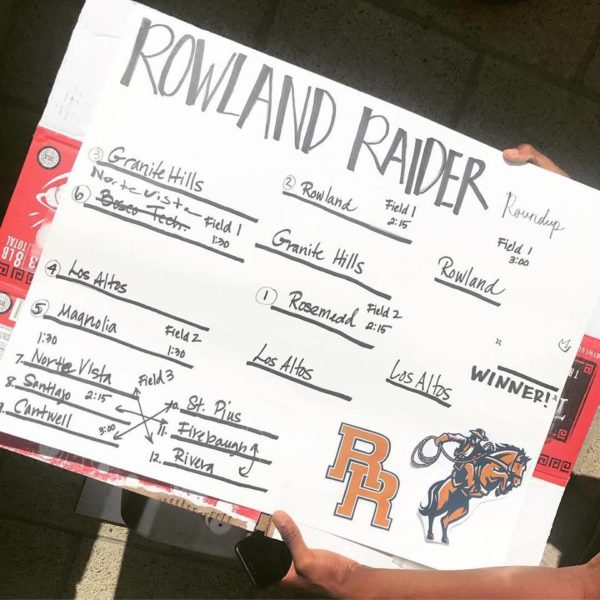 ROWLAND RAIDER
Roundup
③ Granite Hills
Norte Vista
⑥ Bosco Tech.
Field 1
1:30
② Rowland
Field 1
2:15
Granite Hills
Field 1
3:00
Rowland
④ Los Altos
⑤ Magnolia
Field 2
1:30
1:30
① Rosemead
Field 2
2:15
Los Altos
Los Altos
WINNER!
7. Norte Vista
Field 3
8. Santiago 2:15
9. Cantwell 3:00
10. St. Pius
11. Firebaugh
12. Rivera
RR
8LB
TOTAL